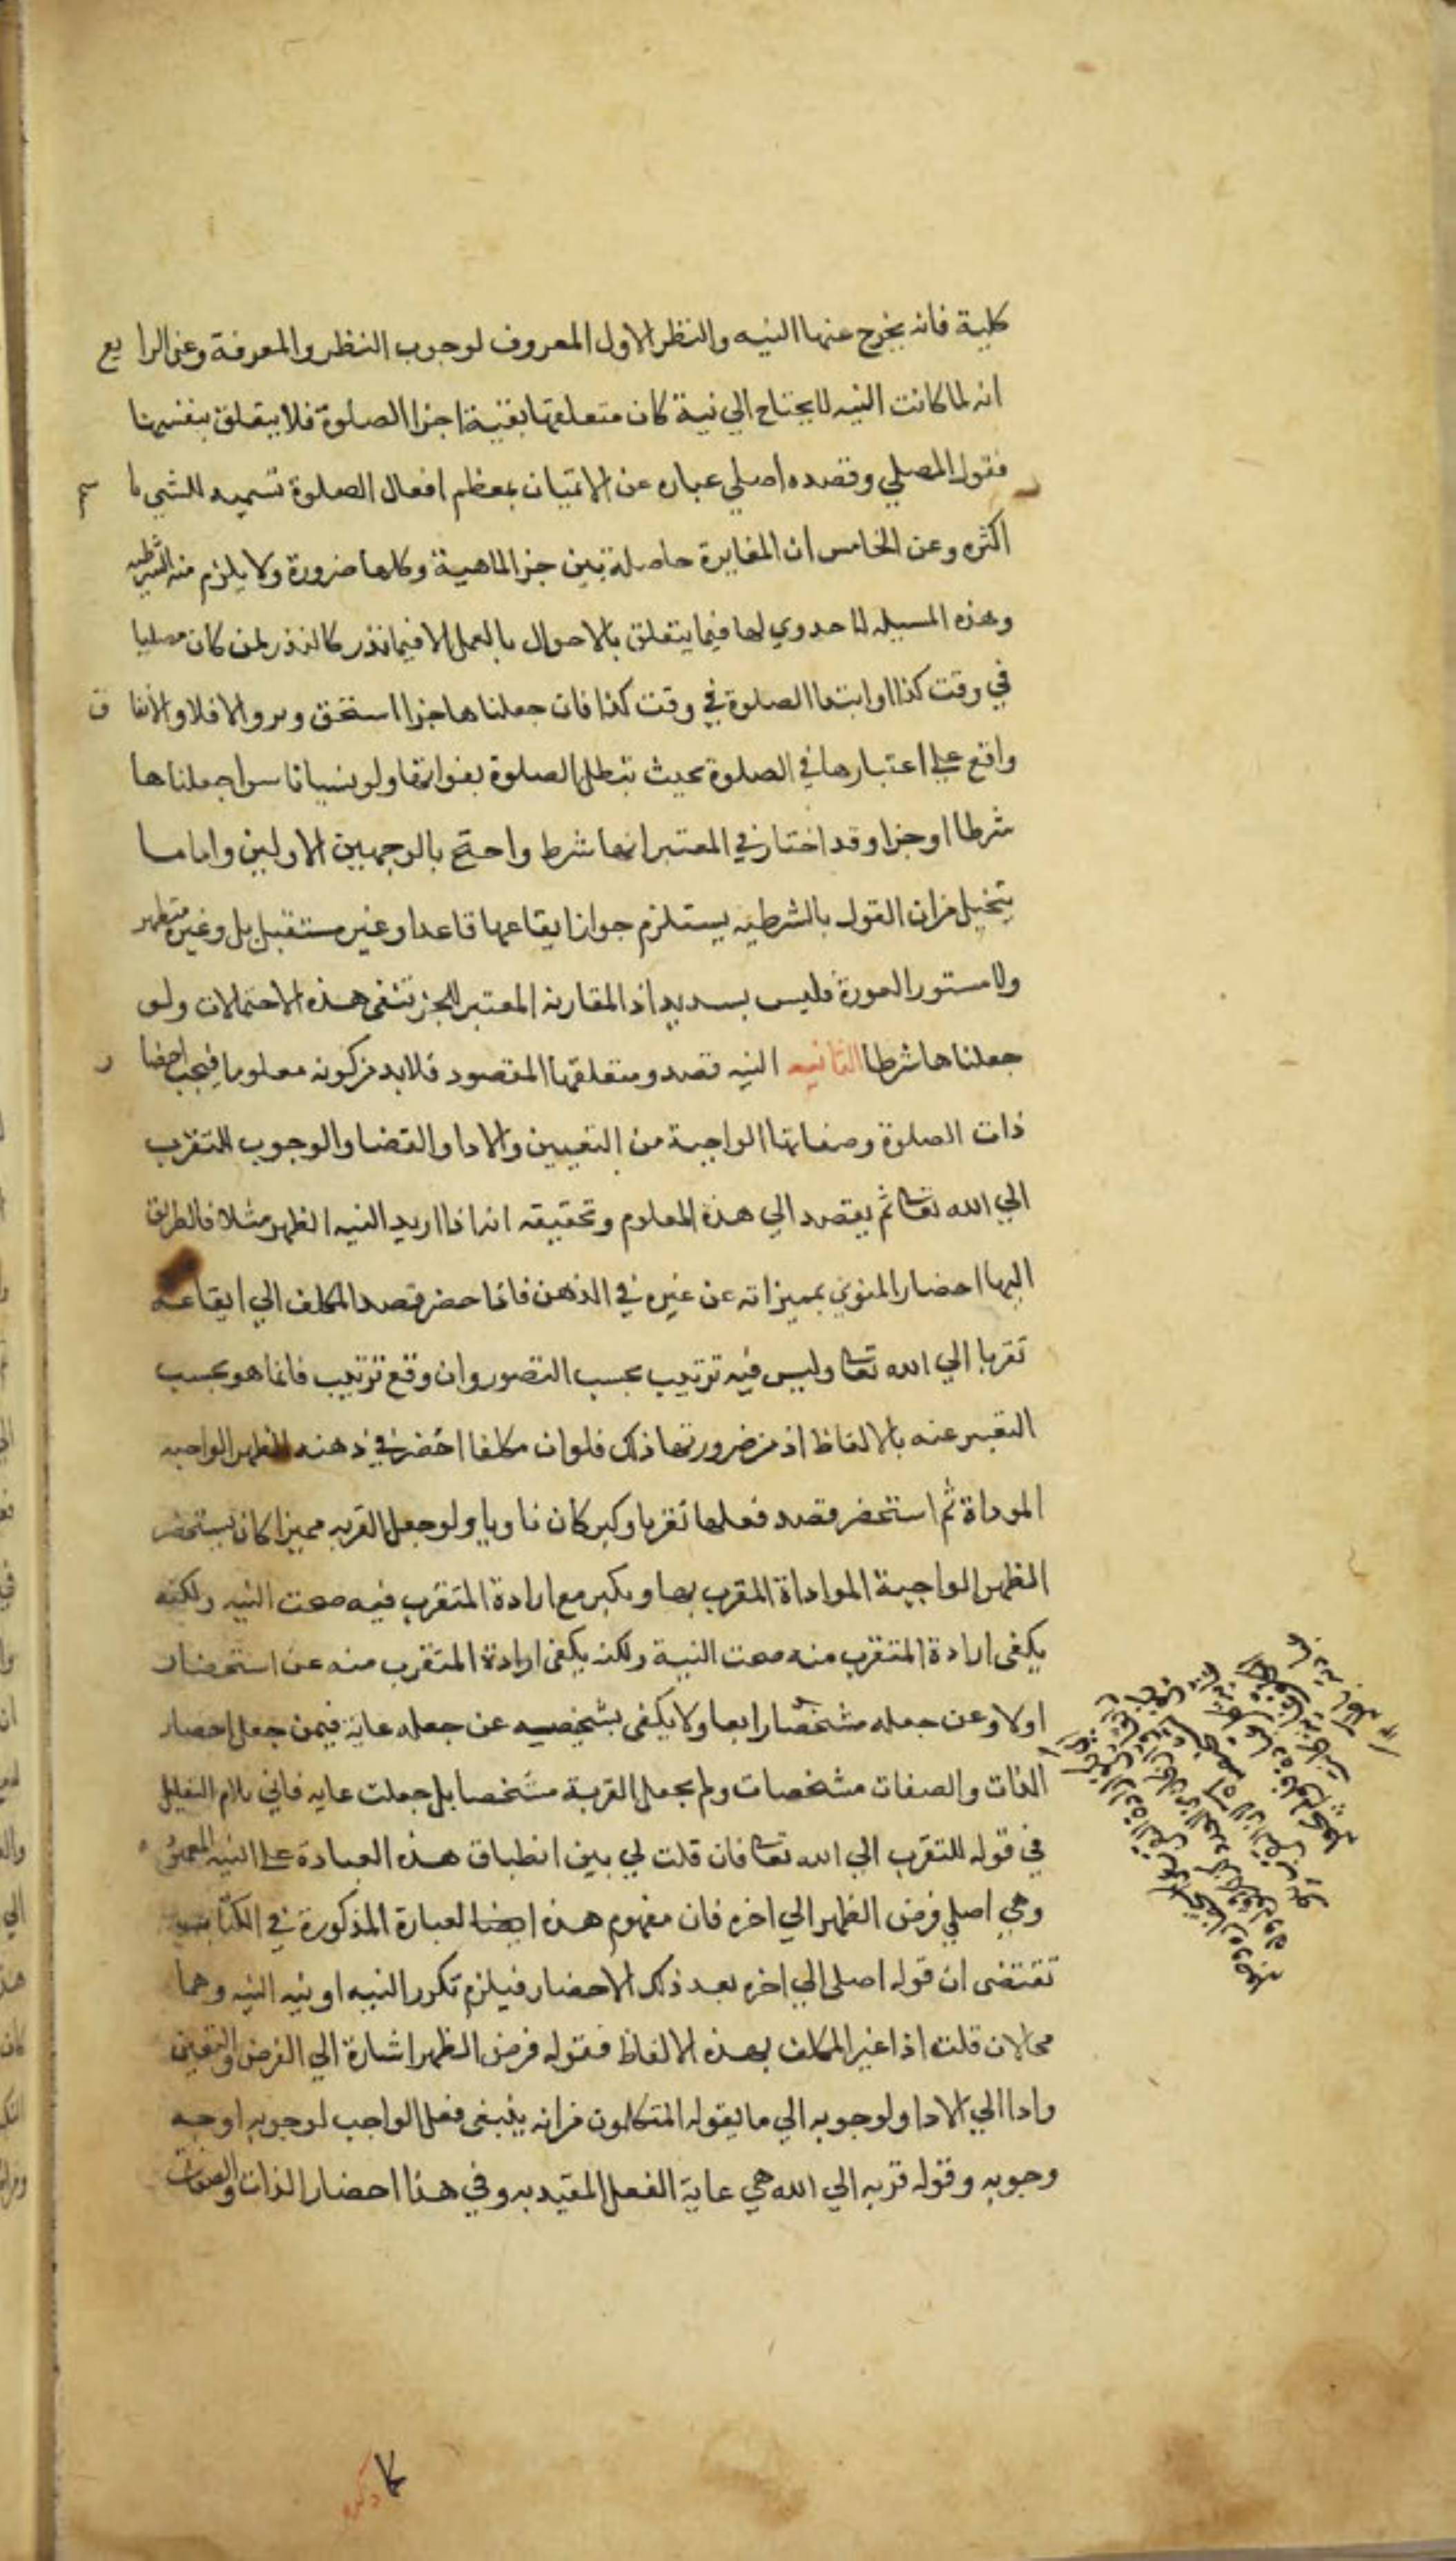 كلية فانه يخرج عنها النيه والنظر الاول المعروف لوجوب النظر والمعرفة وعن الرابع
انه لما كانت النيه لا يحتاج الي نية كان متعلقها بقية اجزا الصلوة فلا يتعلق بنفسها
فقول المصلي وقصده اصلي عباره عن الاتيان بمعظم افعال الصلوة تسميه للشي با
اكثره وعن الخامس ان المغايرة حاصلة بين جزا الماهية وكلها ضرورة ولا يلزم منه الشرطيه
وهذه المسيله لا جدوي لها فيما يتعلق بالاحوال بالعمل الا فيما نذر كالنذر لمن كان مصليا
في وقت كذا او ابتدا الصلوة في وقت كذا فان جعلناها جزا استحق وبر والا فلا والاتفاق
واقع علي اعتبارها في الصلوة بحيث تبطل الصلوة بفواتها ولو نسيانا سوا جعلناها
شرطا او جزا وقد اختار في المعتبر انها شرط واحتج بالوجهين الاولين واما ما
يتخيل من ان القول بالشرطيه يستلزم جواز ايقاعها قاعدا وغير مستقبل بل وغير متطهر
ولا مستور العورة فليس بسديد اذ المقارنه المعتبر للجز تنفي هذه الاحتمالات ولو
جعلناها شرطا الثانيه النيه قصد ومتعلقها المقصود فلابد من كونه معلوما فيجب احضار
ذات الصلوة وصفاتها الواجبة من التعيين والادا والقضا والوجوب للتقرب
الي الله تعالى ثم يقصد الي هذه المعلوم وتحقيقه انه اذا اريد النيه الظهر مثلا فالطريق
اليها احضار المنوي بمميزاته عن غيره في الذهن فاذا حضر قصد المكلف الي ايقاعه
تقربا الي الله تعالى وليس فيه ترتيب بحسب التصور وان وقع ترتيب فانما هو بحسب
التعبير عنه بالالفاظ اذ من ضرورتها ذلك فلو ان مكلفا احضر في ذهنه الظهر الواجبه
الموداة ثم استحضر قصد فعلها تقربا وكبر كان ناويا ولو جعل القربه مميزا كان يستحضر
الظهر الواجبة المواداة المقرب بها ويكبر مع ارادة المتقرب فيه صحت النيه ولكنه
يكفي ارادة المتقرب منه صحت النية ولكنه يكفي ارادة المتقرب منه عن استحضار
اولا وعن جعله مشخصا رابعا ولا يكفي بشخصيه عن جعله غاية فيمن جعل احضار
الذات والصفات مشخصات ولم يجعل القربة مشخصا بل جعلت غايه فاني بلام التعليل
في قوله للتقرب الي الله تعالى فان قلت لي بين انطباق هذه العبادة علي النيه المعهودة
وهي اصلي فرض الظهر الي اخره فان مفهوم هذه ايضا لعبارة المذكورة في الكتاب
تقتضي ان قوله اصلي الي اخره بعد ذلك الاحضار فيلزم تكرر النيه او نيه النيه وهما
محالان قلت اذا عبر المكلف بهذه الالفاظ فقوله فرض الظهر اشارة الي الفرض والتعيين
وادا الي الادا ولوجوبه الي ما يقوله المتكلمون من انه ينبغي فعل الواجب لوجوبه او جه
وجوبه وقوله قربه الي الله هي غاية الفعل المقيد به وفي هذا احضار الذات والصفات